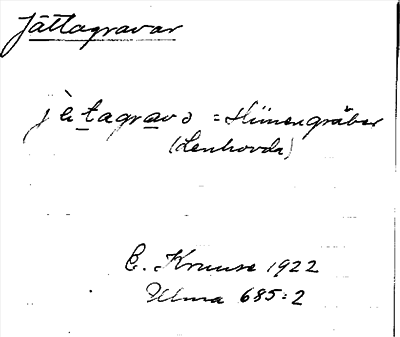 Jättagravar
jätagravə = Hünengräber
(Lenhovda)
E. Kruuse 1922
Ulma 685:2